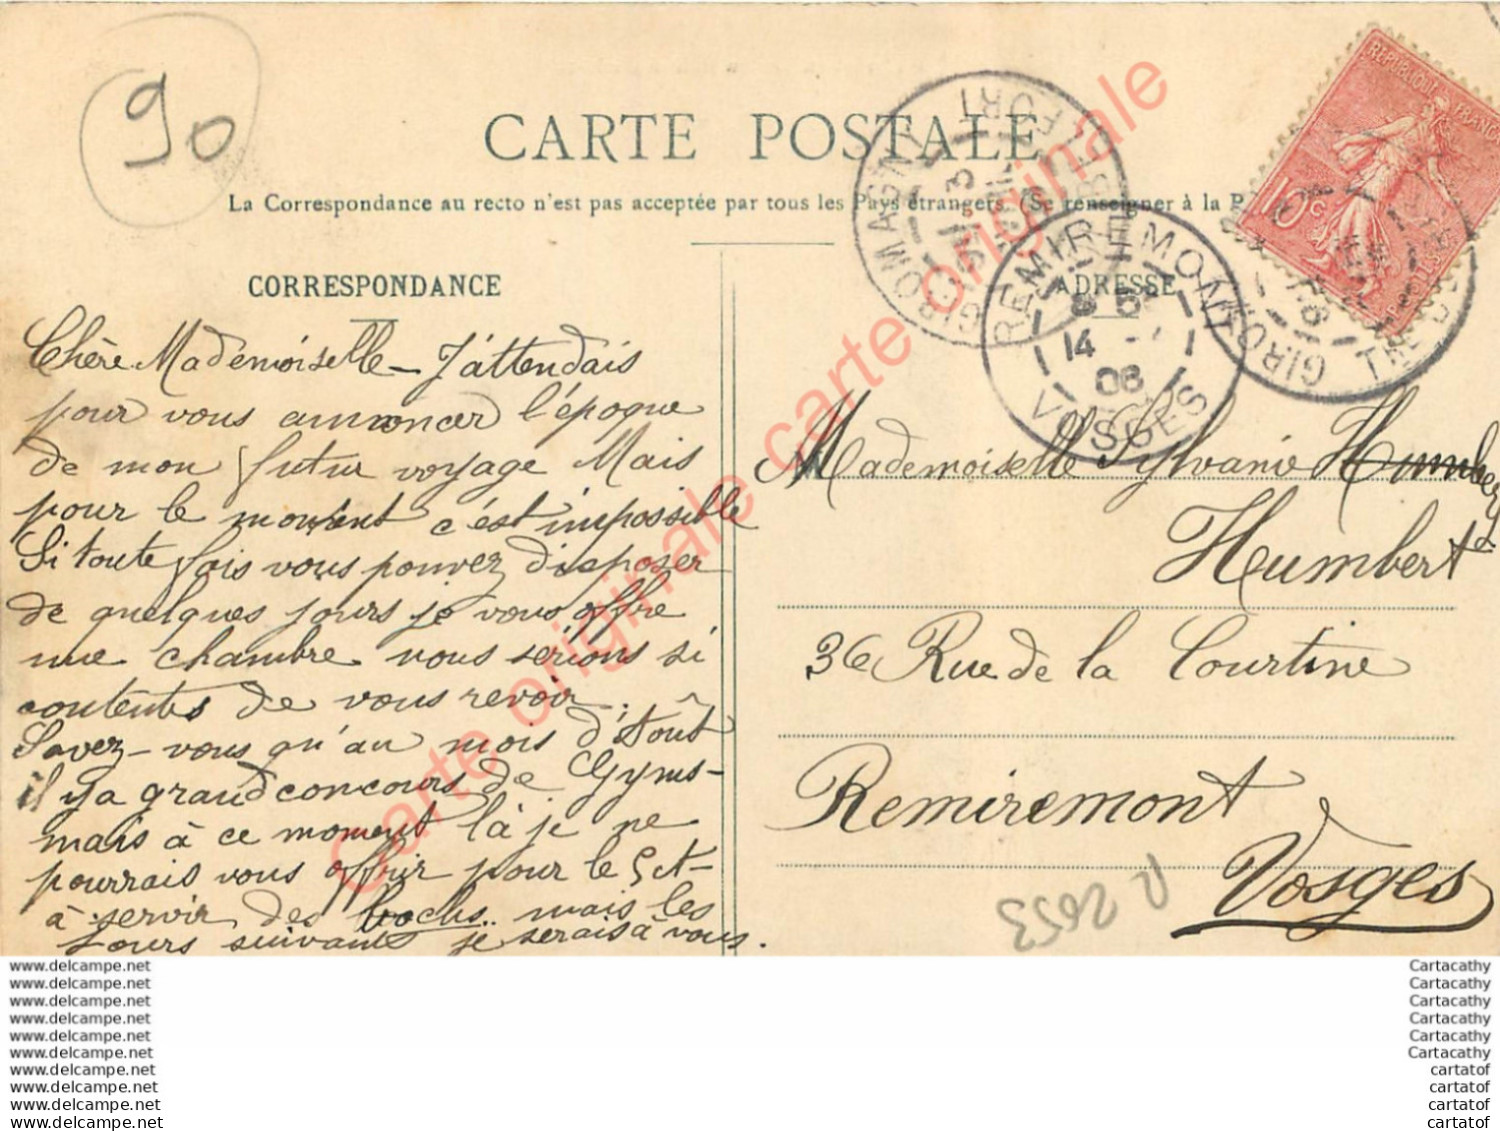 90
CARTE POSTALE
La Correspondance au recto n'est pas acceptée par tous les Pays étrangers. (Se renseigner à la P
CORRESPONDANCE
ADRESSE
RÉPUBLIQUE FRANÇAISE
10c
POSTES
GIROMAGNY
BELFORT
REMIREMONT
14
06
VOSGES
Chère Mademoiselle – J'attendais
pour vous annoncer l'époque
de mon futur voyage Mais
pour le moment c'est impossible
Si toute fois vous pouvez disposer
de quelques jours je vous offre
une chambre vous serions si
contents de vous revoir.
Savez-vous qu'au mois d'Août
il y a grand concours de Gyms-
mais à ce moment là je ne
pourrais vous offrir pour le
à servir des bocks.. mais les
jours suivants je serais à vous.
Mademoiselle Sylvanie Humbert
Humbert
36 Rue de la Courtine
Remiremont
Vosges
R 2653
Carte originale carte originale carte originale
www.delcampe.net
www.delcampe.net
www.delcampe.net
www.delcampe.net
www.delcampe.net
www.delcampe.net
www.delcampe.net
www.delcampe.net
www.delcampe.net
www.delcampe.net
Cartacathy
Cartacathy
Cartacathy
Cartacathy
Cartacathy
Cartacathy
cartatof
cartatof
cartatof
cartatof